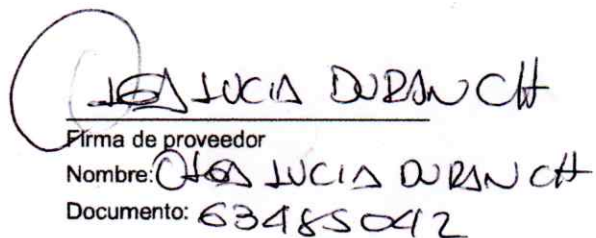 OLGA LUCIA DURAN CH
Firma de proveedor
Nombre: OLGA LUCIA DURAN CH
Documento: 63485042